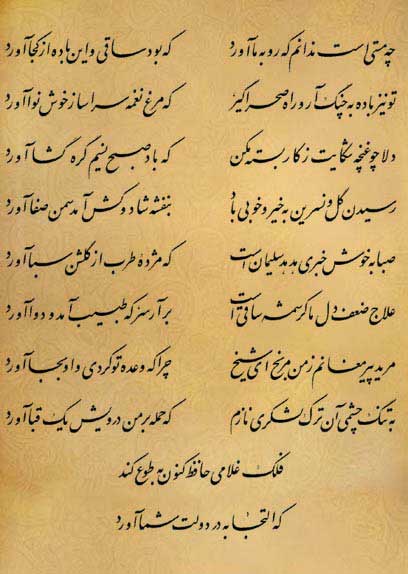 چه مستی است ندانم که رو به ما آورد که بود ساقی و این باده از کجا آورد
تو نیز باده به چنگ آر و راه صحرا گیر که مرغ نغمه سرا ساز خوش نوا آورد
دلا چو غنچه شکایت ز کار بسته مکن که باد صبح نسیم گره گشا آورد
رسیدن گل و نسرین به خیر و خوبی باد بنفشه شاد و کش آمد سمن صفا آورد
صبا به خوش خبری هدهد سلیمان است که مژدهٔ طرب از گلشن سبا آورد
علاج ضعف دل ما کرشمه ساقی است برآر سر که طبیب آمد و دوا آورد
مرید پیر مغانم ز من مرنج ای شیخ چرا که وعده تو کردی و او بجا آورد
به تنگ چشمی آن ترک لشکری نازم که حمله بر من درویش یک قبا آورد
فلک غلامی حافظ کنون به طوع کند
که التجا به در دولت شما آورد